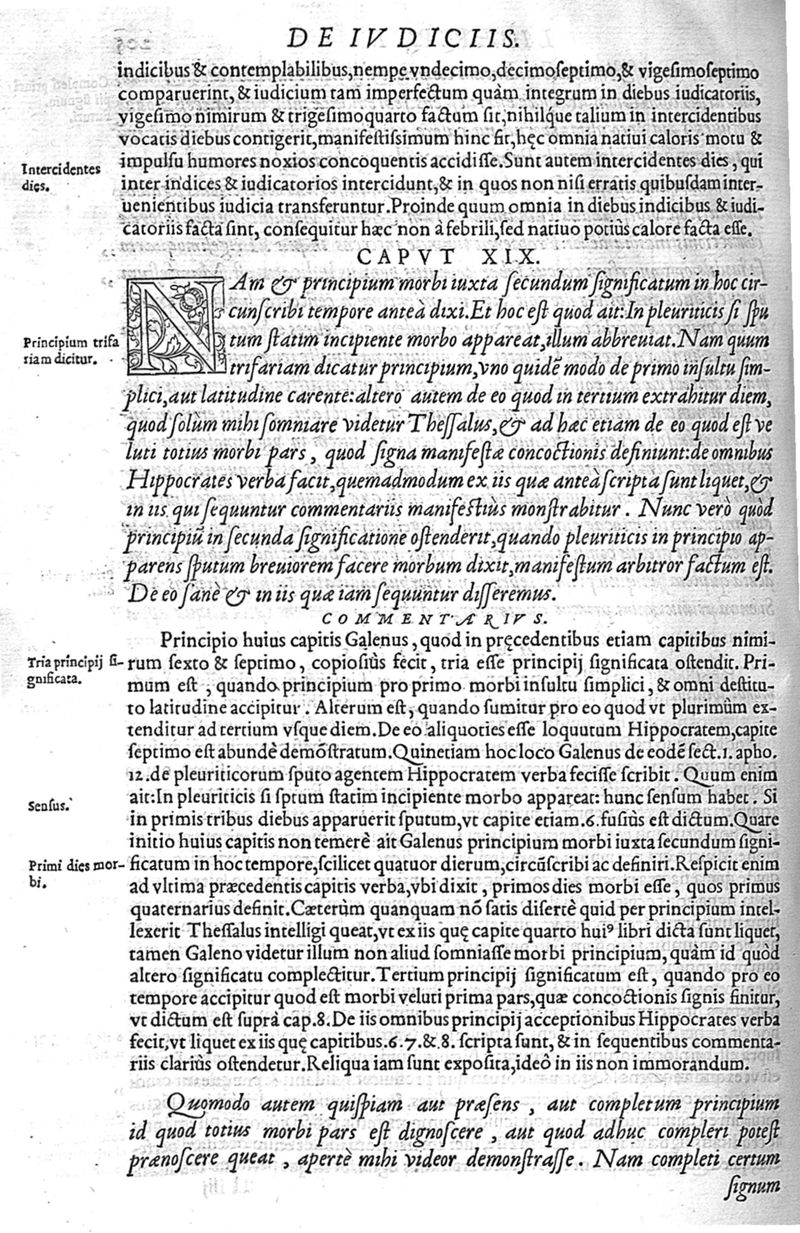 DE IVDICIIS.
indicibus & contemplabilibus, nempe vndecimo, decimoseptimo, & vigesimoseptimo
comparuerint, & iudicium tam imperfectum quàm integrum in diebus iudicatoriis,
vigesimo nimirum & trigesimoquarto factum sit, nihilque talium in intercidentibus
vocatis diebus contigerit, manifestissimum hinc fit, hęc omnia natiui caloris motu &
impulsu humores noxios concoquentis accidisse. Sunt autem intercidentes dies, qui
Intercidentes
dies.
inter indices & iudicatorios intercidunt, & in quos non nisi erratis quibusdam inter-
uenientibus iudicia transferuntur. Proinde quum omnia in diebus indicibus & iudi-
catoriis facta sint, consequitur hæc non à febrili, sed natiuo potiùs calore facta esse.
CAPVT XIX.
NAm & principium morbi iuxta secundum significatum in hoc cir-
cunscribi tempore anteà dixi. Et hoc est quod ait: In pleuriticis si spu
tum statim incipiente morbo appareat, illum abbreuiat. Nam quum
Principium trifa
riam dicitur.
trifariam dicatur principium, vno quidē modo de primo insultu sim-
plici, aut latitudine carente: altero autem de eo quod in tertium extrahitur diem,
quod solùm mihi somniare videtur Thessalus, & ad hæc etiam de eo quod est ve
luti totius morbi pars, quod signa manifestæ concoctionis definiunt: de omnibus
Hippocrates verba facit, quemadmodum ex iis quæ anteà scripta sunt liquet, &
in iis qui sequuntur commentariis manifestiùs monstrabitur. Nunc verò quòd
principiū in secunda significatione ostenderit, quando pleuriticis in principio ap-
parens sputum breuiorem facere morbum dixit, manifestum arbitror factum est.
De eo sanè & in iis quæ iam sequuntur disseremus.
COMMENTARIVS.
Principio huius capitis Galenus, quod in pręcedentibus etiam capitibus nimi-
Tria principij si-
gnificata.
rum sexto & septimo, copiosiùs fecit, tria esse principij significata ostendit. Pri-
mum est, quando principium pro primo morbi insultu simplici, & omni destitu-
to latitudine accipitur. Alterum est, quando sumitur pro eo quod vt plurimùm ex-
tenditur ad tertium vsque diem. De eo aliquoties esse loquutum Hippocratem, capite
septimo est abundè demōstratum. Quinetiam hoc loco Galenus de eodē sect. 1. apho.
12. de pleuriticorum sputo agentem Hippocratem verba fecisse scribit. Quum enim
Sensus.
ait: In pleuriticis si sptum statim incipiente morbo appareat: hunc sensum habet. Si
in primis tribus diebus apparuerit sputum, vt capite etiam. 6. fusiùs est dictum. Quare
initio huius capitis non temerè ait Galenus principium morbi iuxta secundum signi-
Primi dies mor-
bi.
ficatum in hoc tempore, scilicet quatuor dierum, circūscribi ac definiri. Respicit enim
ad vltima præcedentis capitis verba, vbi dixit, primos dies morbi esse, quos primus
quaternarius definit. Cæterùm quanquam nō satis disertè quid per principium intel-
lexerit Thessalus intelligi queat, vt ex iis quę capite quarto huiꝰ libri dicta sunt liquet,
tamen Galeno videtur illum non aliud somniasse morbi principium, quàm id quòd
altero significatu complectitur. Tertium principij significatum est, quando pro eo
tempore accipitur quod est morbi veluti prima pars, quæ concoctionis signis finitur,
vt dictum est suprà cap. 8. De iis omnibus principij acceptionibus Hippocrates verba
fecit, vt liquet ex iis quę capitibus. 6. 7. & 8. scripta sunt, & in sequentibus commenta-
riis clariùs ostendetur. Reliqua iam sunt exposita, ideò in iis non immorandum.
Quomodo autem quispiam aut præsens, aut completum principium
id quod totius morbi pars est dignoscere, aut quod adhuc compleri potest
prænoscere queat, apertè mihi videor demonstrasse. Nam completi certum
signum